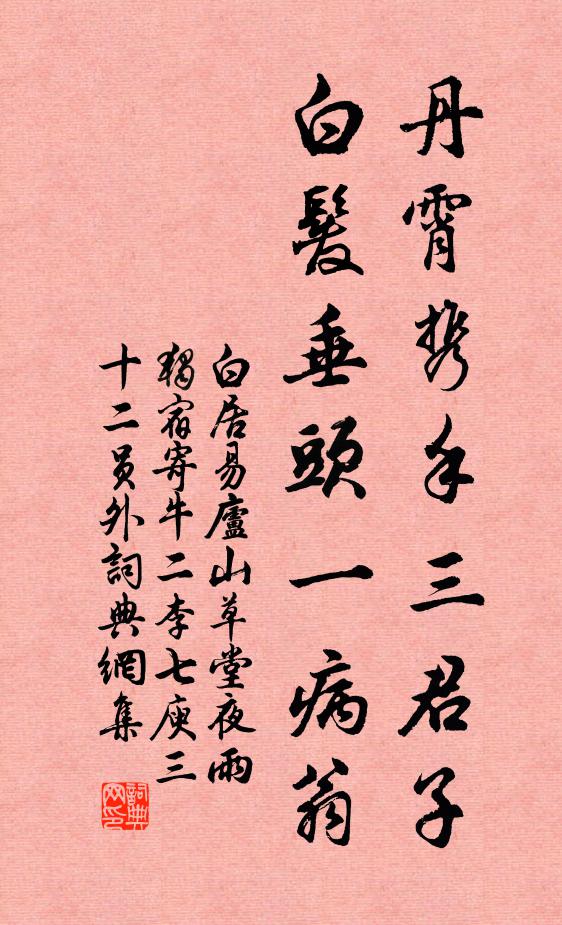 丹霄携手三君子
白髮垂頭一病翁
白居易廬山草堂夜雨
獨宿寄牛二李七庾三
十二員外詞典網集
詞典
网印